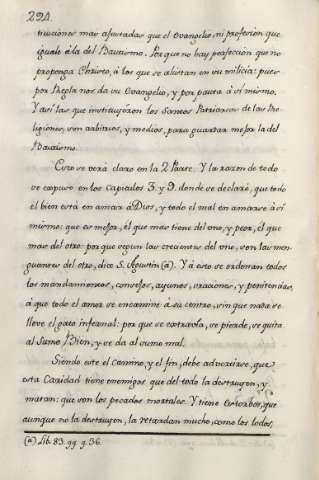 294.
tituciones mas ajustadas que el Evangelio, ni profesion que
iguale à la del Bautismo. Porque no hay perfeccion que no
proponga Christo, à los que se alistan en su milicia: pues
por Regla nos da su Evangelio, y por pauta à sí mismo.
Y asi las que instituyéron los Santos Patriarcas de las Re-
ligiones, son arbitrios, y medios para guardar mejor la del
Bautismo.
Esto se verá claro en la 2 Parte. Y la razon de todo
se expuso en los Capitulos 3. y 9. donde se declaró, que todo
el bien está en amar à Dios, y todo el mal en amarse à sí
mismo: que es mejor, el que mas tiene del uno, y peor, el que
mas del otro: por que segun las crecientes del uno, son las men-
guantes del otro, dice S. Agustin (a). Y à esto se ordenan todos
los mandamientos, consejos, ayunos, oraciones, y penitencias,
à que todo el amor se encamine à su centro, sin que nada se
lleve el gato infernal: por que se extravía, se pierde, se quita
al Sumo Bien, y se da al sumo mal.
Siendo este el camino, y el fin, debe advertirse, que
esta Caridad tiene enemigos que del todo la destruyen, y
matan: que son los pecados mortales. Y tiene estorbos, que
aunque no la destruyen, la retardan mucho, como los lodos,
(a) Lib. 83. qq. q. 36.